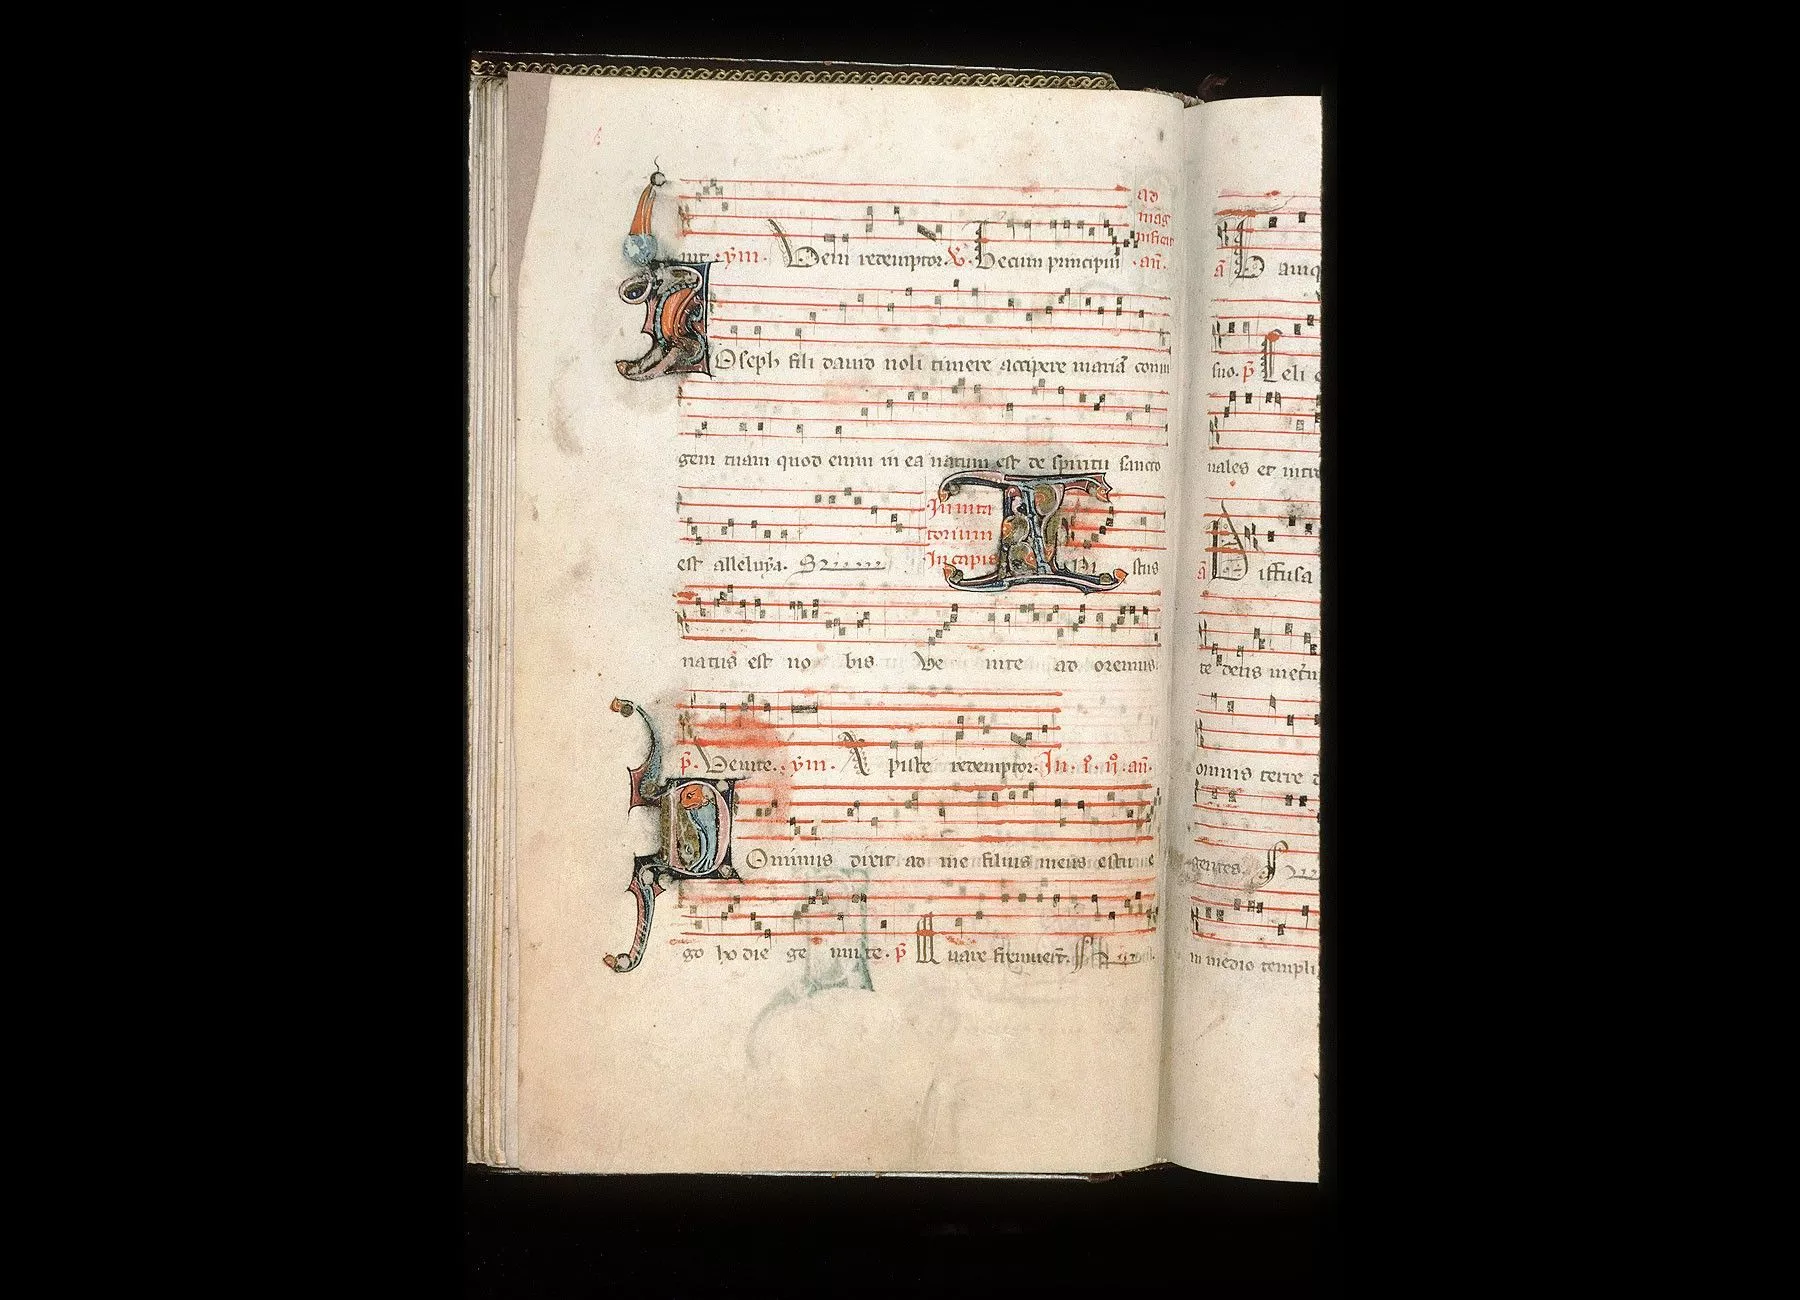 ad
mag
nificat
nit. ym. Veni redemptor. V. Tecum principiu. an.
IOseph fili dauid noli timere accipere maria coniu
gem tuam quod enim in ea natum est de spiritu sancto
est alleluya. Seuouae
Inuita
torium
Incipit
XPi stus
natus est no bis Ve nite ad oremus
p. Venite. ym. A piste redemptor. In. p. n. an.
DOminus dixit ad me filius meus es tu e
go ho die ge nui te. p Quare fremuert.
suo. p Celi
uales et
a Diffusa
te deus
omnis terre
gentes.
in medio templi